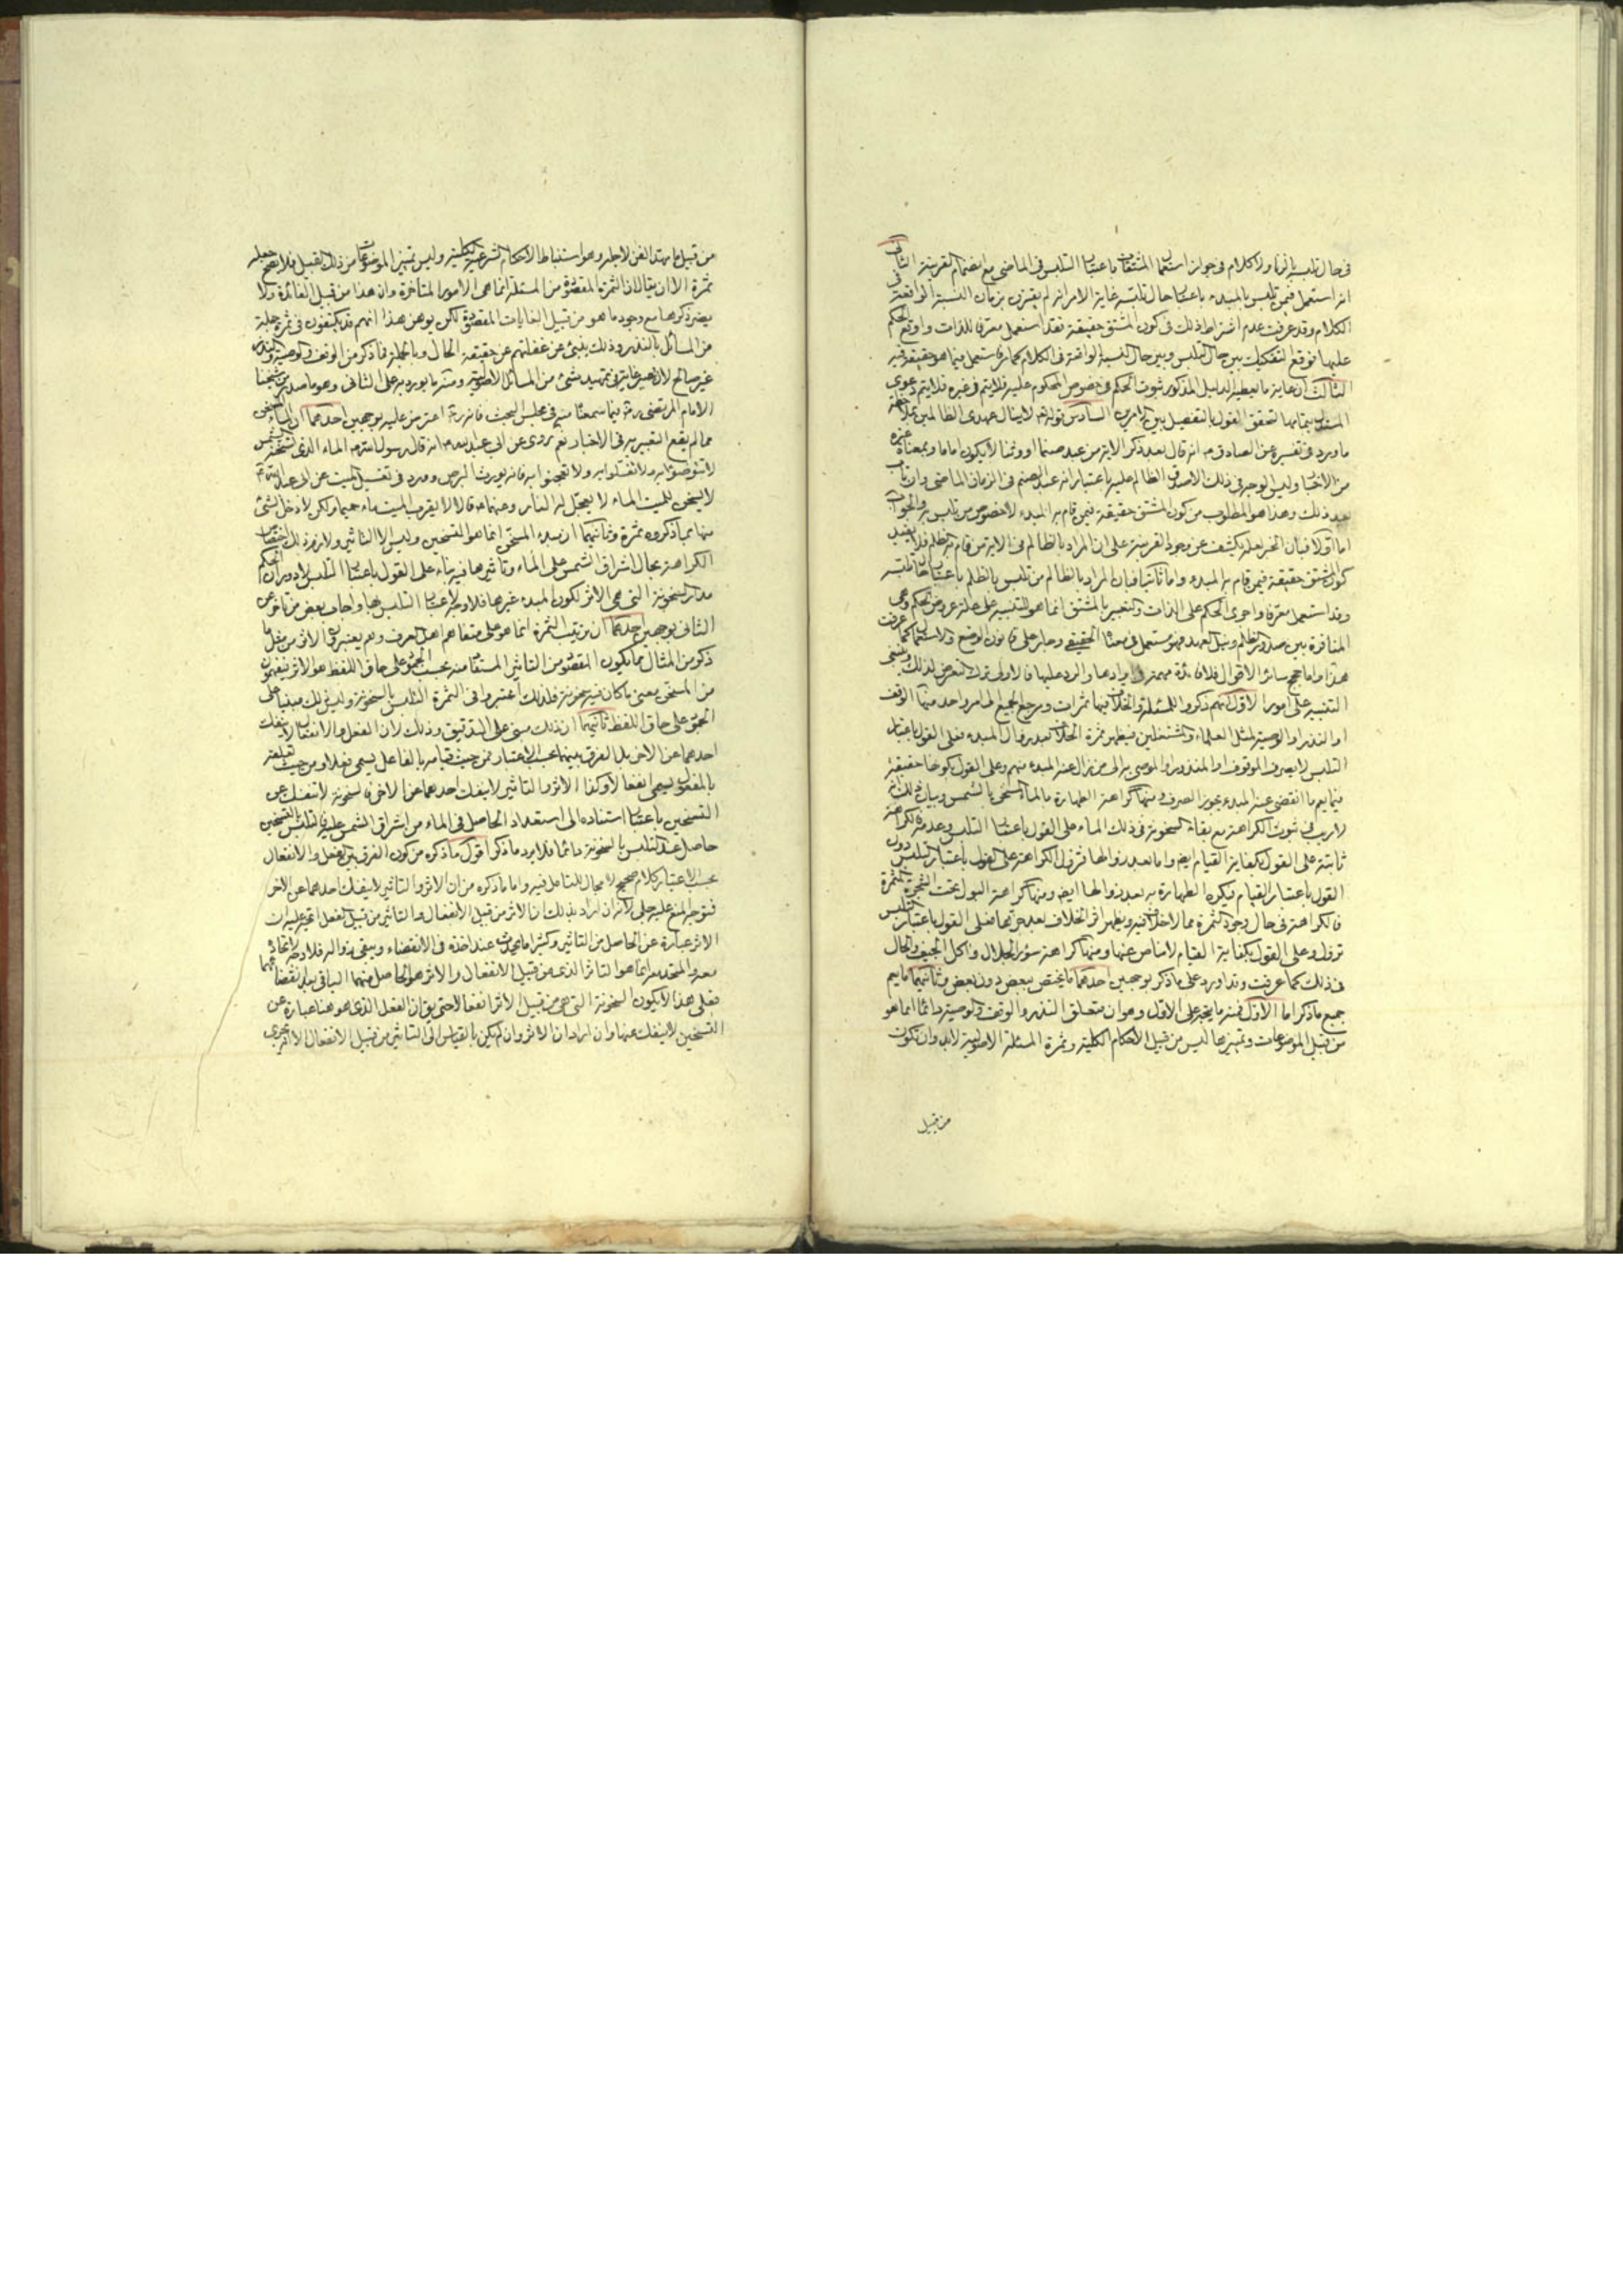 في حال تلبسه بالزنا ولا كلام في جواز استعمال المشتقات باعتبار التلبس في الماضي مع انضمام القرينة الثاني
انه استعمل فيمن تلبس بالمبدء باعتبار حال تلبسه غاية الامر انه لم يقترن بزمان النسبة الواقعة في
الكلام وقد عرفت عدم اشتراط ذلك في كون المشتق حقيقة فقد استعمل معرفا للذات واوقع الحكم
عليها فوقع التفكيك بين حال التلبس وبين حال النسبة الواقعة في الكلام فما استعمل فيما هو حقيقة فيه
الثالث ان غاية ما يعطيه الدليل المذكور ثبوت الحكم في خصوص المحكوم عليه فلا يتم في غيره فلا يتم دعوى
المستدل بتمامها لتحقق القول بالتفصيل بين الامرين السادس قوله تعالى لا ينال عهدي الظالمين بملاحظة
ما ورد في تفسيره عن الصادق ع انه قال بعد ذكر الاية من عبد صنما او وثنا لا يكون اماما وبمعناه غيره
من الاخبار وليس الوجه في ذلك الا صدق الظالم عليه باعتبار انه عبد الصنم في الزمان الماضي وان تاب
بعد ذلك وهذا هو المطلوب من كون المشتق حقيقة فيمن قام به المبدء لا خصوص من تلبس به والجواب
اما اولا فبان الخبر لعله يكشف عن وجود القرينة على ان المراد بالظالم في الاية من قام به الظلم فلا يفيد
كون المشتق حقيقة فيمن قام به المبدء واما ثانيا فبان المراد بالظالم من تلبس بالظلم باعتبار حال تلبسه
وقد استعمل معرفا واجرى الحكم على الذات والتعبير بالمشتق انما هو للتنبيه على علة عروض الحكم وهي
المنافرة بين صدور الظلم ونيل العهد فهو مستعمل في معناه الحقيقي وجار على قانون الوضع والاستعمال كما عرفت
هذا واما حجج سائر الاقوال فلا فائدة مهمة في ايرادها والرد عليها فالاولى ترك التعرض لذلك وينبغي
التنبيه على امور الاول انهم ذكروا للمسئلة والخلاف فيها ثمرات ومرجع الجميع الى امر واحد منها الوقف
او النذر او الوصية لمثل العلماء والمشتغلين فيظهر ثمرة الخلاف بعد زوال المبدء فعلى القول باعتبار
التلبس لا يصرف الموقوف او المنذور او الموصى به الى من زال عنه المبدء منهم وعلى القول بكونها حقيقة
فيما يعم ما انقضى عنه المبدء يجوز الصرف ومنها كراهة الطهارة بالماء المسخن بالشمس وبيان ذلك انه
لا ريب في ثبوت الكراهة مع بقاء السخونة في ذلك الماء على القول باعتبار التلبس وعدمه فالكراهة
ثابتة على القول بكفاية القيام ايضا واما بعد زوالها فتزول الكراهة على القول باعتبار التلبس دون
القول باعتبار القيام فيكره الطهارة به بعد زوالها ايضا ومنها كراهة البول تحت الشجرة المثمرة
فالكراهة في حال وجود الثمرة مما لا خلاف فيه ويظهر اثر الخلاف بعد رفعها فعلى القول باعتبار التلبس
تزول وعلى القول بكفاية القيام لا مناص عنها ومنها كراهة سؤر الجلال واكل الجيف والحال
في ذلك كما عرفت وقد اورد على ما ذكر بوجهين احدهما ما يختص ببعض دون بعض وثانيهما ما يعم
جميع ما ذكر اما الاول فمنه ما يتجه على الاول وهو ان متعلق النذر والوقف والوصية دائما انما هو
من قبيل الموضوعات وتميزها ليس من قبيل الاحكام الكلية وثمرة المسئلة الاصولية لابد وان تكون
من قبيل
من قبيل ما مهد الفن لاجله وهو استنباط الاحكام الشرعية الكلية وليس تميز الموضوعات من ذلك القبيل فلا يصح جعله
ثمرة الا ان يقال ان الثمرة المقصودة من المسئلة انما هي الامور المتأخرة وان هذا من قبيل الفائدة ولا
يضر ذكرها مع وجود ما هو من قبيل الغايات المقصودة لكن يوهن هذا انهم قد يكتفون في ثمرة جملة
من المسائل بالنذر وذلك ينبئ عن غفلتهم عن حقيقة الحال وبالجملة فما ذكر من الوقف والوصية والنذر
غير صالح لان يصير غاية في تمهيد شئ من المسائل الاصولية ومنه ما يورد به على الثاني وهو ما صدر من شيخنا
الامام المرتضى ره فيما سمعنا منه في مجلس البحث فانه ره اعترض عليه بوجهين احدهما ان الماء المسخن
مما لم يقع التعبير به في الاخبار نعم روى عن ابي عبد الله ع انه قال رسول الله ص الماء الذي تسخنه الشمس
لا تتوضؤا به ولا تغتسلوا به ولا تعجنوا به فانه يورث البرص وورد في تغسيل الميت عن ابي عبد الله ع
لا يسخن للميت الماء لا يعجل له النار وعنهما ع قالا لا يقرب الميت ماء حميما ولكن لا دخل لشئ
منها بما ذكروه ثمرة وثانيهما ان مبدء المسخن انما هو التسخين وليس الا التاثير ولازم ذلك اختصاص
الكراهة بحال اشراق الشمس على الماء وتاثيرها فيه بناء على القول باعتبار التلبس لا دوران الحكم
مدار السخونة التي هي الاثر لكون المبدء غيرها فلا وجه لاعتبار التلبس بها واجاب بعض من تاخر عن
الثاني بوجهين احدهما ان ترتيب الثمرة انما هو على متفاهم اهل العرف وهم يعتبرون الاثر من مثل ما
ذكر من المثال مما يكون المقصود من التاثير المستفاد منه بحسب الجمود على حاق اللفظ هو الاثر فيفهمون
من المسخن معنى ما كان فيه سخونة فلذلك اعتبروا في الثمرة التلبس بالسخونة وليس ذلك مبنيا على
الجمود على حاق اللفظ ثانيهما ان ذلك مبني على التدقيق وذلك لان الفعل والانفعال لا ينفك
احدهما عن الاخر بل الفرق بينهما بحسب الاعتبار فمن حيث قيامه بالفاعل يسمى فعلا ومن حيث تعلقه
بالمفعول يسمى انفعالا وكذا الاثر والتاثير لا ينفك احدهما عن الاخر فالسخونة لا تنفك عن
التسخين باعتبار استناده الى استعداد الحاصل في الماء من اشراق الشمس عليه فالتلبس بالتسخين
حاصل عند التلبس بالسخونة دائما فلا يرد ما ذكر اقول ما ذكره من كون الفرق بين الفعل والانفعال
بحسب الاعتبار كلام صحيح لا مجال للتامل فيه واما ما ذكره من ان الاثر والتاثير لا ينفك احدهما عن الاخر
فتوجه المنع عليه جلي لانه ان اراد بذلك ان الاثر من قبيل الانفعال والتاثير من قبيل الفعل اتجه عليه ان
الاثر عبارة عن الحاصل من التاثير وكثيرا ما يحدث عند اخذه في الانقضاء ويبقى بزواله فلا وجه لاتحاده
معه والمتحد معه انما هو التاثر الذي من قبيل الانفعال والاثر هو الحاصل منهما الباقي بعد انقضائهما
فعلى هذا لا يكون السخونة التي هي من قبيل الاثر انفعالا حتى يقال ان الفعل الذي هو هنا عبارة عن
التسخين لا ينفك عنها وان اراد ان الاثر وان لم يكن بالقياس الى التاثير من قبيل الانفعال الا انه يجري